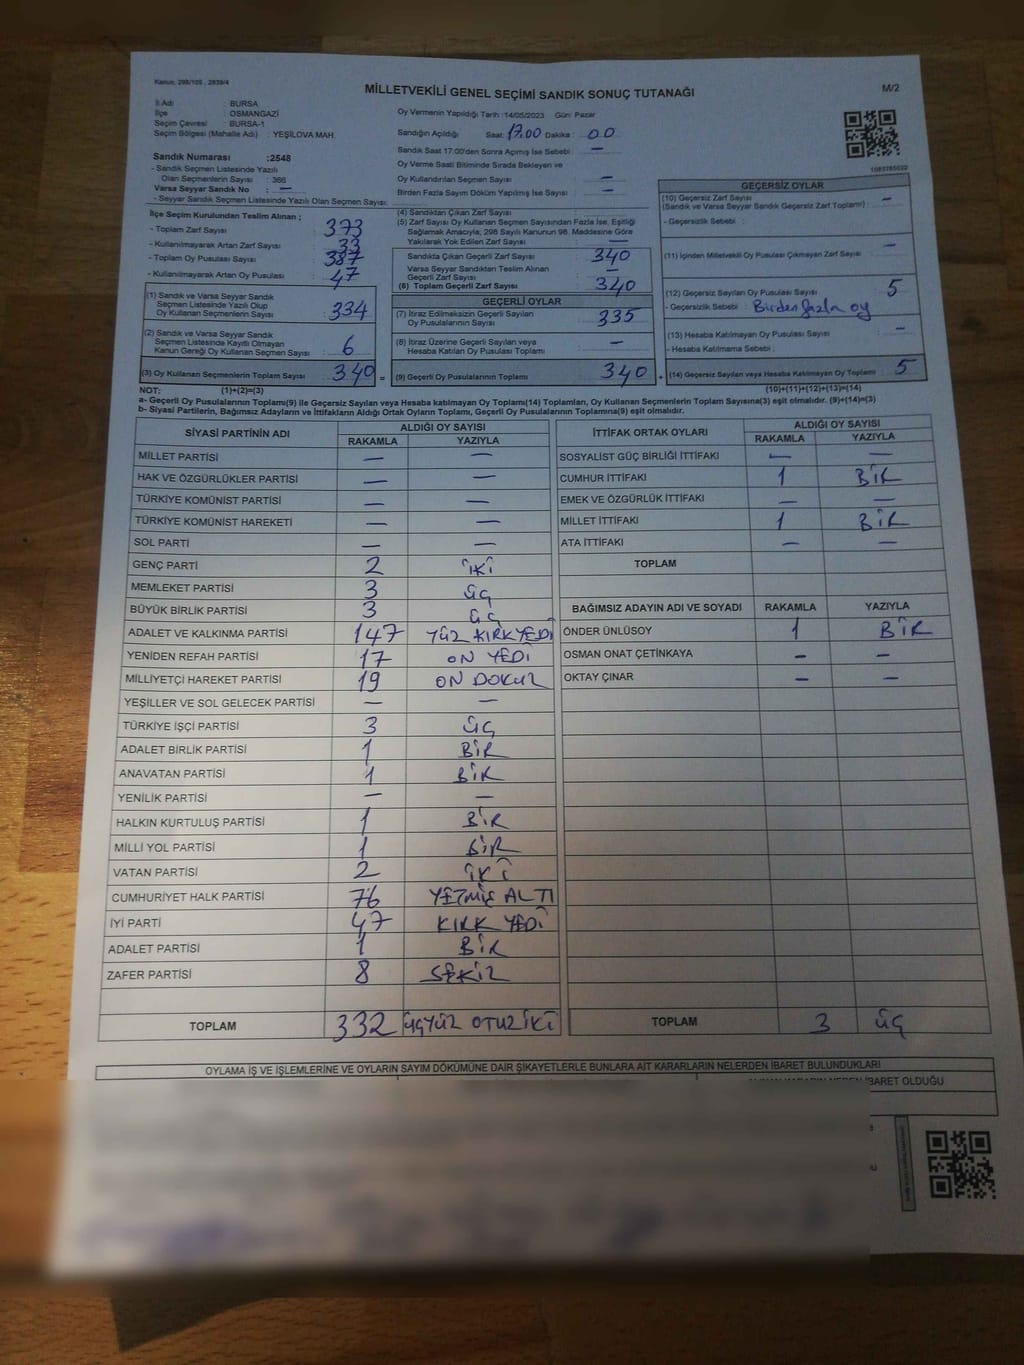 Kanun, 298/105 , 2839/4
MİLLETVEKİLİ GENEL SEÇİMİ SANDIK SONUÇ TUTANAĞI
M/2
İl Adı : BURSA
İlçe : OSMANGAZİ
Seçim Çevresi : BURSA-1
Seçim Bölgesi (Mahalle Adı) : YEŞİLOVA MAH.
Sandık Numarası :2548
- Sandık Seçmen Listesinde Yazılı
Olan Seçmenlerin Sayısı : 366
Varsa Seyyar Sandık No : —
- Seyyar Sandık Seçmen Listesinde Yazılı Olan Seçmen Sayısı:
Oy Vermenin Yapıldığı Tarih :14/05/2023 Gün: Pazar
Sandığın Açıldığı Saat: 17.00 Dakika : 00
Sandık Saat 17:00'den Sonra Açımış İse Sebebi : —
Oy Verme Saati Bitiminde Sırada Bekleyen ve
Oy Kullandırılan Seçmen Sayısı : —
Birden Fazla Sayım Döküm Yapılmış İse Sayısı : —
İlçe Seçim Kurulundan Teslim Alınan ;
- Toplam Zarf Sayısı : 373
- Kullanılmayarak Artan Zarf Sayısı : 33
- Toplam Oy Pusulası Sayısı : 387
- Kullanılmayarak Artan Oy Pusulası : 47
(1) Sandık ve Varsa Seyyar Sandık
Seçmen Listesinde Yazılı Olup
Oy Kullanan Seçmenlerin Sayısı : 334
(2) Sandık ve Varsa Seyyar Sandık
Seçmen Listesinde Kayıtlı Olmayan
Kanun Gereği Oy Kullanan Seçmen Sayısı : 6
(3) Oy Kullanan Seçmenlerin Toplam Sayısı : 340 =
(4) Sandıktan Çıkan Zarf Sayısı :
(5) Zarf Sayısı Oy Kullanan Seçmen Sayısından Fazla İse, Eşitliği
Sağlamak Amacıyla, 298 Sayılı Kanunun 98. Maddesine Göre
Yakılarak Yok Edilen Zarf Sayısı : —
Sandıkta Çıkan Geçerli Zarf Sayısı : 340
Varsa Seyyar Sandıktan Teslim Alınan
Geçerli Zarf Sayısı : —
(6) Toplam Geçerli Zarf Sayısı : 340
GEÇERLİ OYLAR
(7) İtiraz Edilmeksizin Geçerli Sayılan
Oy Pusulalarının Sayısı : 335
(8) İtiraz Üzerine Geçerli Sayılan veya
Hesaba Katılan Oy Pusulası Toplamı : —
(9) Geçerli Oy Pusulalarının Toplamı : 340 +
GEÇERSİZ OYLAR
(10) Geçersiz Zarf Sayısı
(Sandık ve Varsa Seyyar Sandık Geçersiz Zarf Toplamı) : —
- Geçersizlik Sebebi :
(11) İçinden Milletvekili Oy Pusulası Çıkmayan Zarf Sayısı : —
(12) Geçersiz Sayılan Oy Pusulası Sayısı : 5
- Geçersizlik Sebebi : Birden fazla oy
(13) Hesaba Katılmayan Oy Pusulası Sayısı : —
- Hesaba Katılmama Sebebi :
(14) Geçersiz Sayılan veya Hesaba Katılmayan Oy Toplamı : 5
NOT: (1)+(2)=(3) (10)+(11)+(12)+(13)=(14)
a- Geçerli Oy Pusulalarının Toplamı(9) ile Geçersiz Sayılan veya Hesaba katılmayan Oy Toplamı(14) Toplamları, Oy Kullanan Seçmenlerin Toplam Sayısına(3) eşit olmalıdır. (9)+(14)=(3)
b- Siyasi Partilerin, Bağımsız Adayların ve İttifakların Aldığı Ortak Oyların Toplamı, Geçerli Oy Pusulalarının Toplamına(9) eşit olmalıdır.
SİYASİ PARTİNİN ADI ALDIĞI OY SAYISI
RAKAMLA YAZIYLA
MİLLET PARTİSİ — —
HAK VE ÖZGÜRLÜKLER PARTİSİ — —
TÜRKİYE KOMÜNİST PARTİSİ — —
TÜRKİYE KOMÜNİST HAREKETİ — —
SOL PARTİ — —
GENÇ PARTİ 2 İKİ
MEMLEKET PARTİSİ 3 üç
BÜYÜK BİRLİK PARTİSİ 3 üç
ADALET VE KALKINMA PARTİSİ 147 YÜZ KIRKYEDİ
YENİDEN REFAH PARTİSİ 17 ON YEDİ
MİLLİYETÇİ HAREKET PARTİSİ 19 ON DOKUZ
YEŞİLLER VE SOL GELECEK PARTİSİ — —
TÜRKİYE İŞÇİ PARTİSİ 3 üç
ADALET BİRLİK PARTİSİ 1 BİR
ANAVATAN PARTİSİ 1 BİR
YENİLİK PARTİSİ — —
HALKIN KURTULUŞ PARTİSİ 1 BİR
MİLLİ YOL PARTİSİ 1 BİR
VATAN PARTİSİ 2 İKİ
CUMHURİYET HALK PARTİSİ 76 YETMİŞ ALTI
İYİ PARTİ 47 KIRK YEDİ
ADALET PARTİSİ 1 BİR
ZAFER PARTİSİ 8 SEKİZ
TOPLAM 332 üçYÜZ OTUZİKİ
İTTİFAK ORTAK OYLARI ALDIĞI OY SAYISI
RAKAMLA YAZIYLA
SOSYALİST GÜÇ BİRLİĞİ İTTİFAKI — —
CUMHUR İTTİFAKI 1 BİR
EMEK VE ÖZGÜRLÜK İTTİFAKI — —
MİLLET İTTİFAKI 1 BİR
ATA İTTİFAKI — —
TOPLAM
BAĞIMSIZ ADAYIN ADI VE SOYADI RAKAMLA YAZIYLA
ÖNDER ÜNLÜSOY 1 BİR
OSMAN ONAT ÇETİNKAYA — —
OKTAY ÇINAR — —
TOPLAM 3 üç
OYLAMA İŞ VE İŞLEMLERİNE VE OYLARIN SAYIM DÖKÜMÜNE DAİR ŞİKAYETLERLE BUNLARA AİT KARARLARIN NELERDEN İBARET BULUNDUKLARI
İBARET OLDUĞU